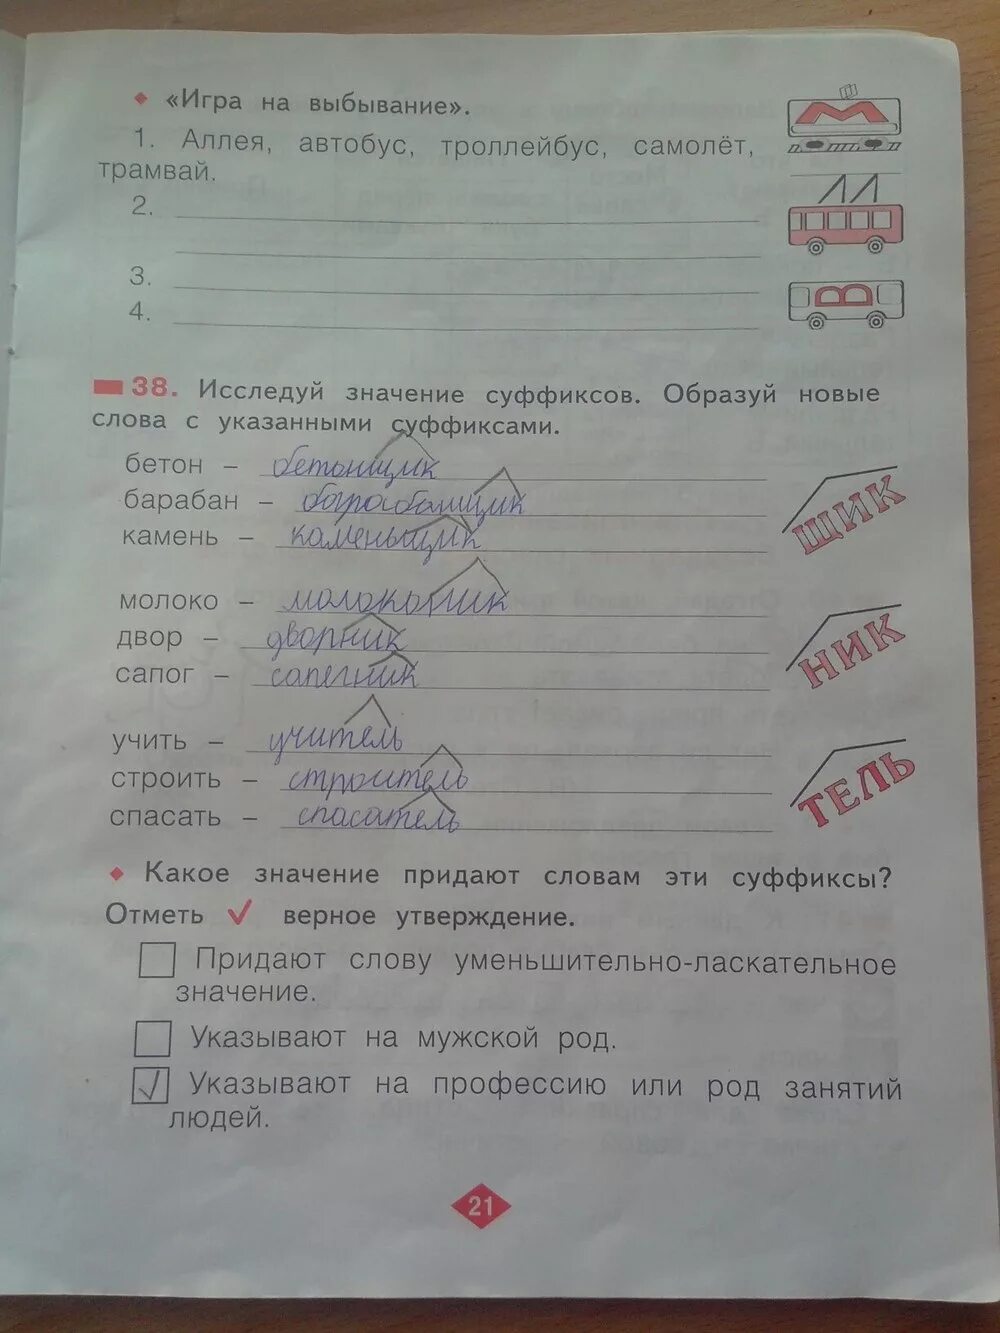 «Игра на выбывание».
1. Аллея, автобус, троллейбус, самолёт,
трамвай.
2.
3.
4.
38. Исследуй значение суффиксов. Образуй новые
слова с указанными суффиксами.
бетон – бетонщик
барабан – барабанщик
камень – каменьщик
ЩИК
молоко – молоконик
двор – дворник
сапог – сапегник
НИК
учить – учитель
строить – строитель
спасать – спасатель
ТЕЛЬ
Какое значение придают словам эти суффиксы?
Отметь ✓ верное утверждение.
Придают слову уменьшительно-ласкательное
значение.
Указывают на мужской род.
✓ Указывают на профессию или род занятий
людей.
21